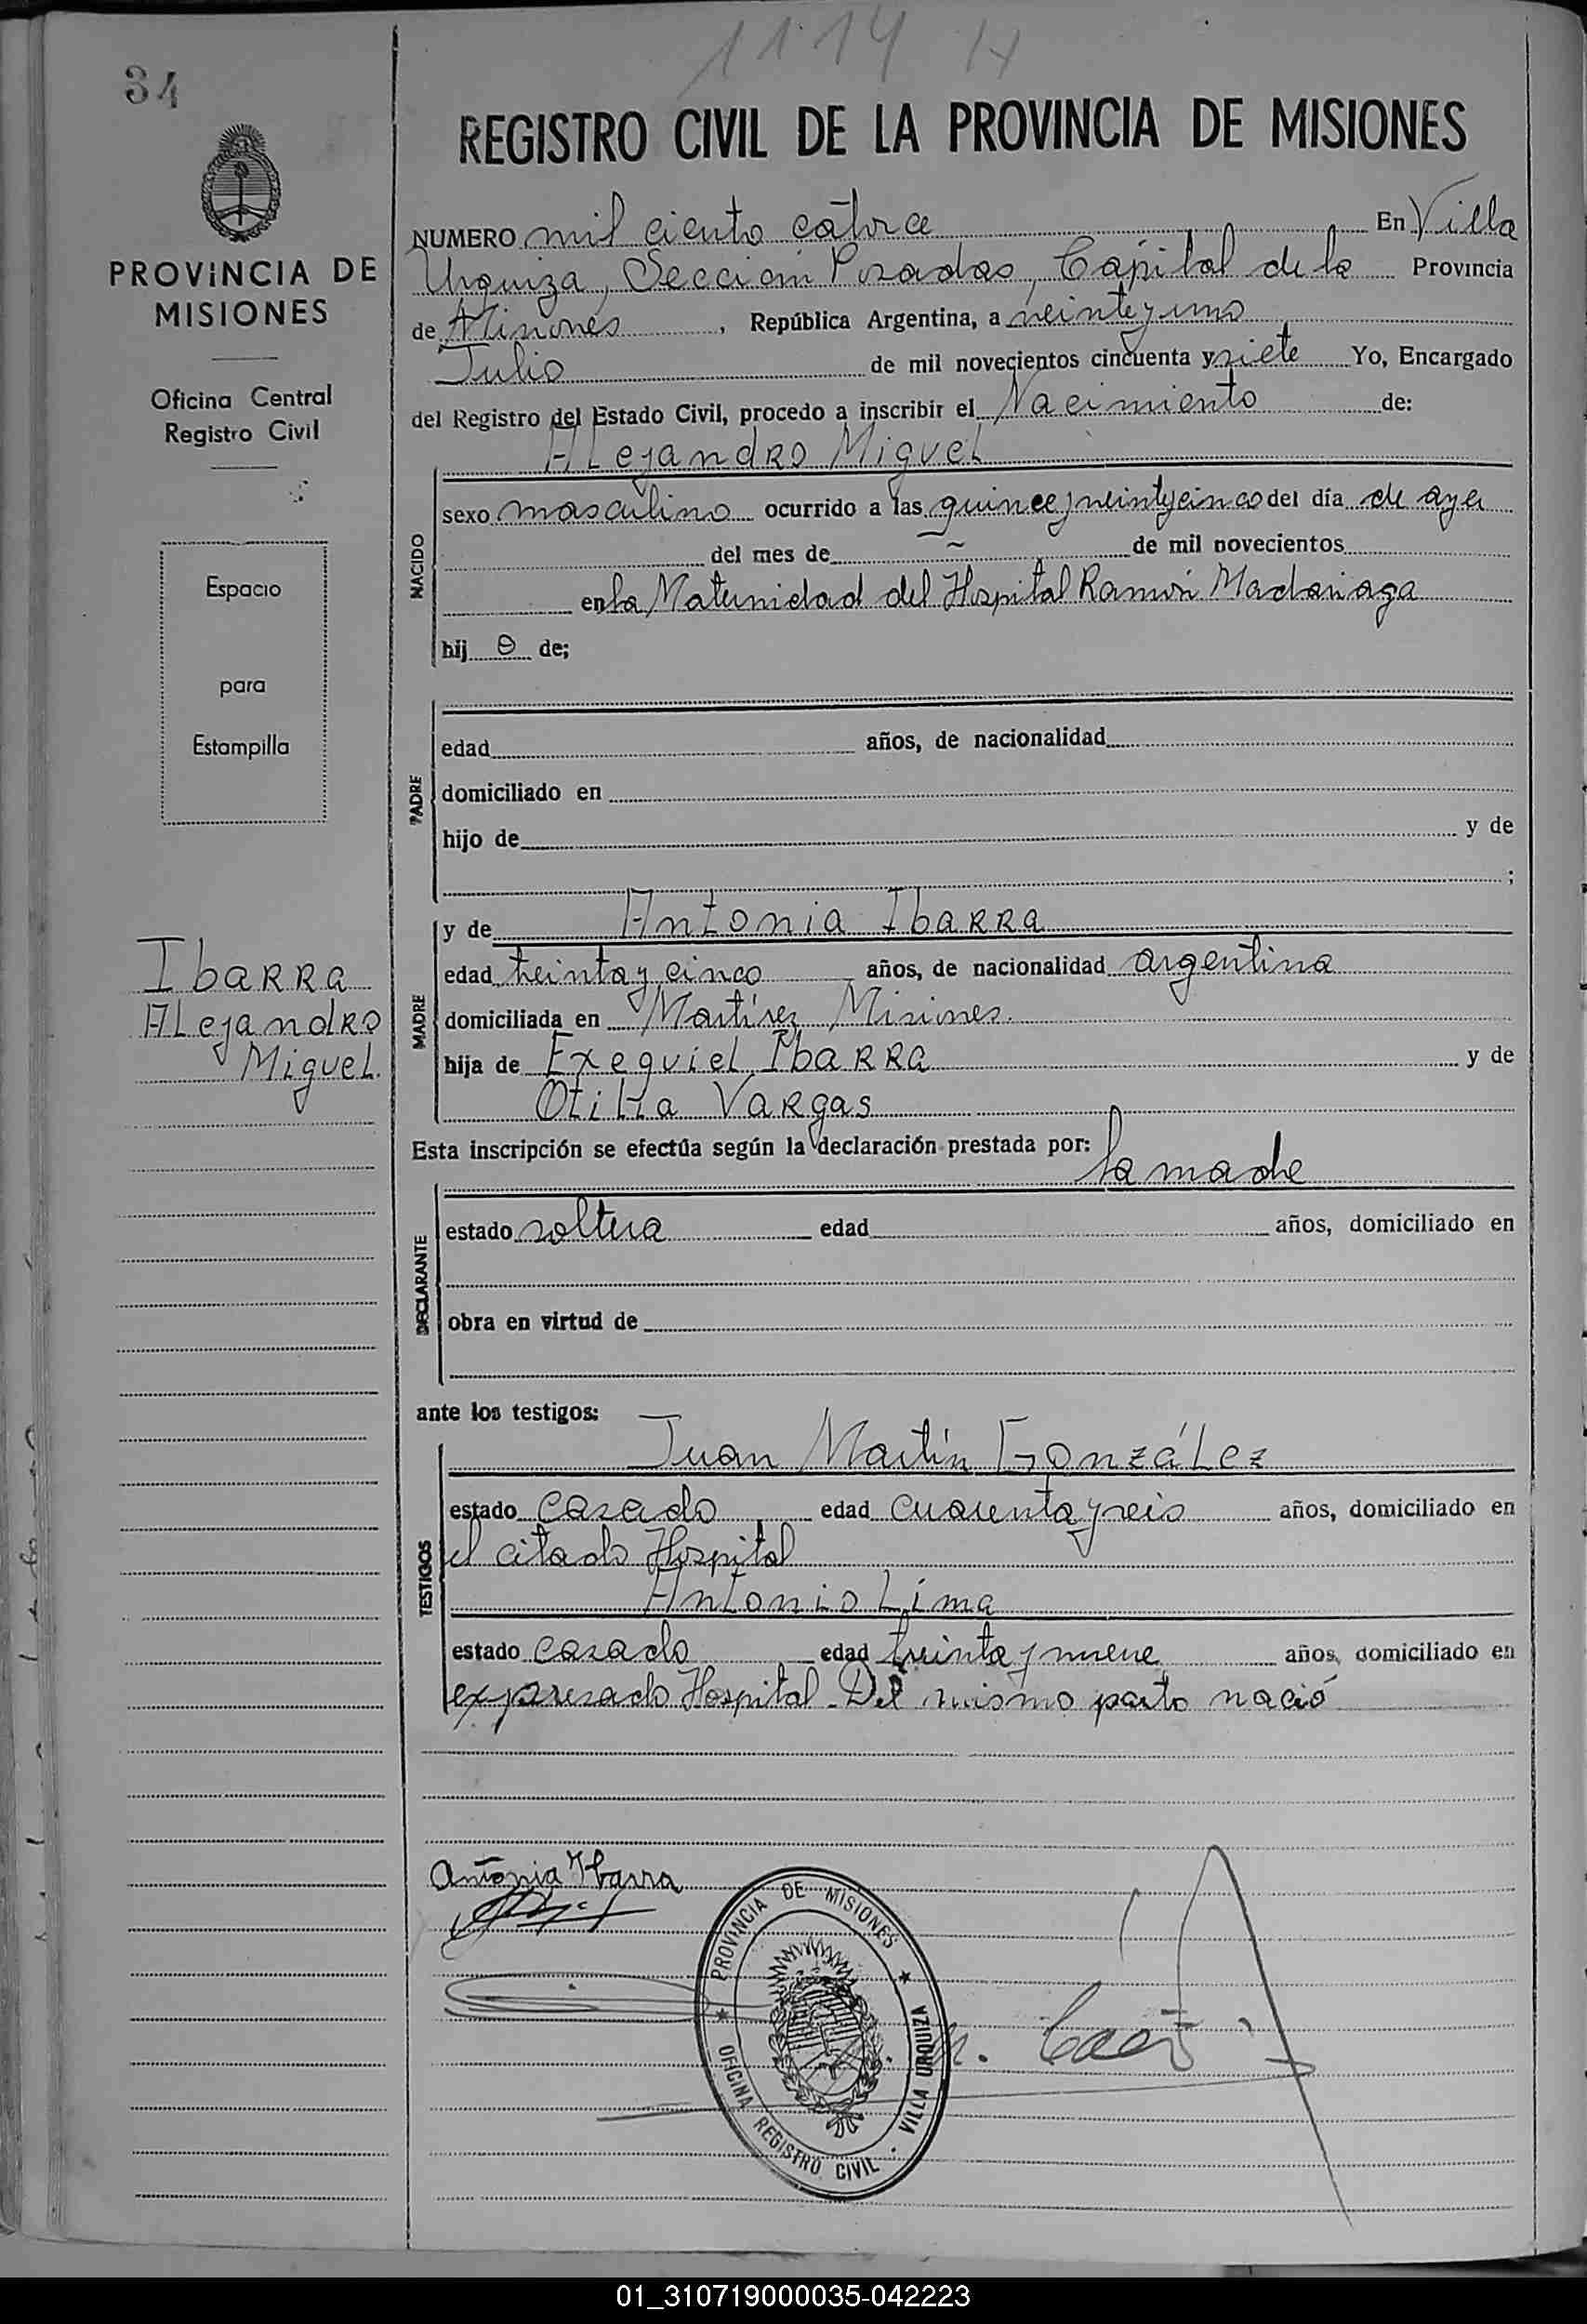 1114 H
34
REGISTRO CIVIL DE LA PROVINCIA DE MISIONES
PROVINCIA DE
MISIONES
Oficina Central
Registro Civil
Espacio
para
Estampilla
Ibarra
Alejandro
Miguel.
NUMERO mil ciento catorce En Villa
Urquiza, Sección Posadas, Capital de la Provincia
de Misiones, República Argentina, a veinte y uno
Julio de mil novecientos cincuenta y siete Yo, Encargado
del Registro del Estado Civil, procedo a inscribir el Nacimiento de:
Alejandro Miguel
NACIDO
sexo masculino ocurrido a las quince y veinty cinco del día de ayer
del mes de ~ de mil novecientos
en la Maternidad del Hospital Ramón Madariaga
hij o de;
PADRE
edad años, de nacionalidad
domiciliado en
hijo de y de
;
MADRE
y de Antonia Ibarra
edad treinta y cinco años, de nacionalidad argentina
domiciliada en Martires Misiones.
hija de Exequiel Ibarra y de
Otilia Vargas
Esta inscripción se efectúa según la declaración prestada por:
la madre
DECLARANTE
estado soltera edad años, domiciliado en
obra en virtud de
ante los testigos:
Juan Martín González
TESTIGOS
estado casado edad cuarenta y seis años, domiciliado en
el citado Hospital
Antonio Lima
estado casado edad treinta y nueve años, domiciliado en
expresado Hospital - Del mismo parto nació
Antonia Ybarra
PROVINCIA DE MISIONES
OFICINA REGISTRO CIVIL - VILLA URQUIZA
01_310719000035-042223